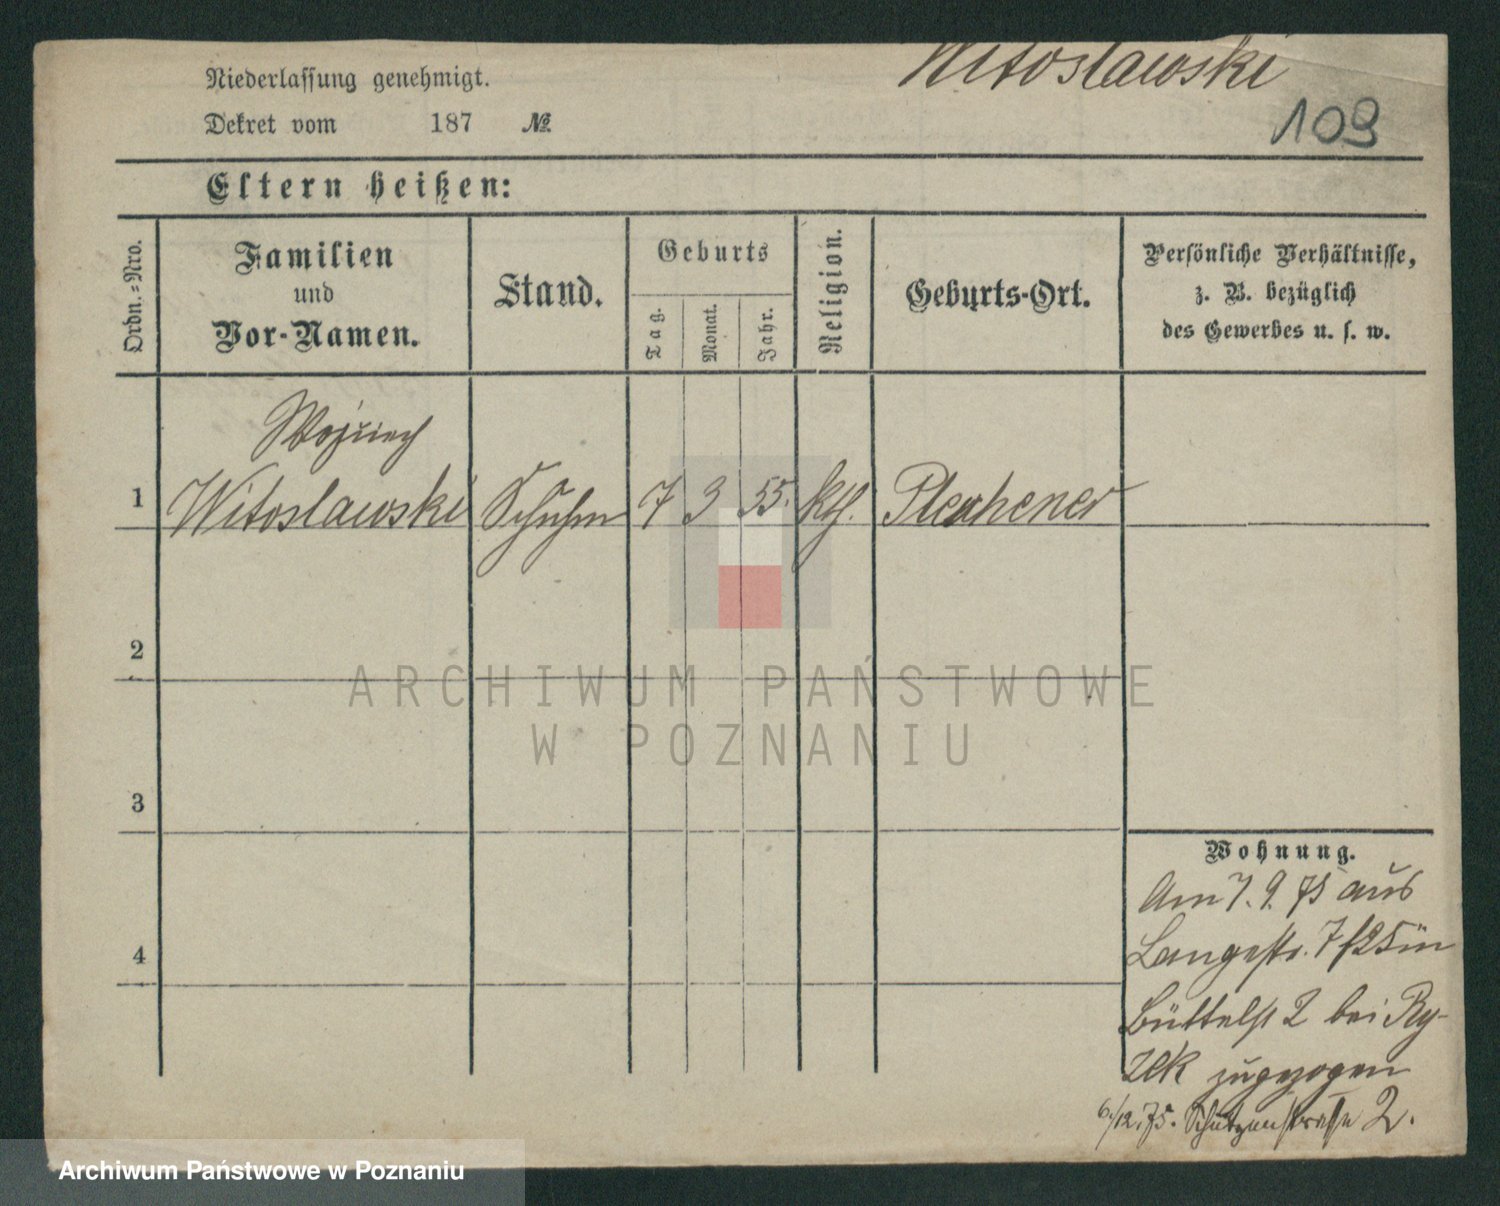 Witoslawski
Niederlassung genehmigt.
109
Dekret vom 187 №
Eltern heißen:
Ordn.-Nro.
Familien
und
Vor-Namen.
Stand.
Geburts
Tag.
Monat.
Jahr.
Religion.
Geburts-Ort.
Persönliche Verhältnisse,
z. B. bezüglich
des Gewerbes u. s. w.
Wojciech
1 Witoslawski Schuhm 7 3 55. kth.
2
3
4
ARCHIWUM PAŃSTWOWE
W POZNANIU
Wohnung.
Am 7. 9. 75 aus
Langestr. 7 / 25 in
Büttelst 2 bei Ry-
zek zugezogen
6/12.75. Schützenstraße 2.
Archiwum Państwowe w Poznaniu